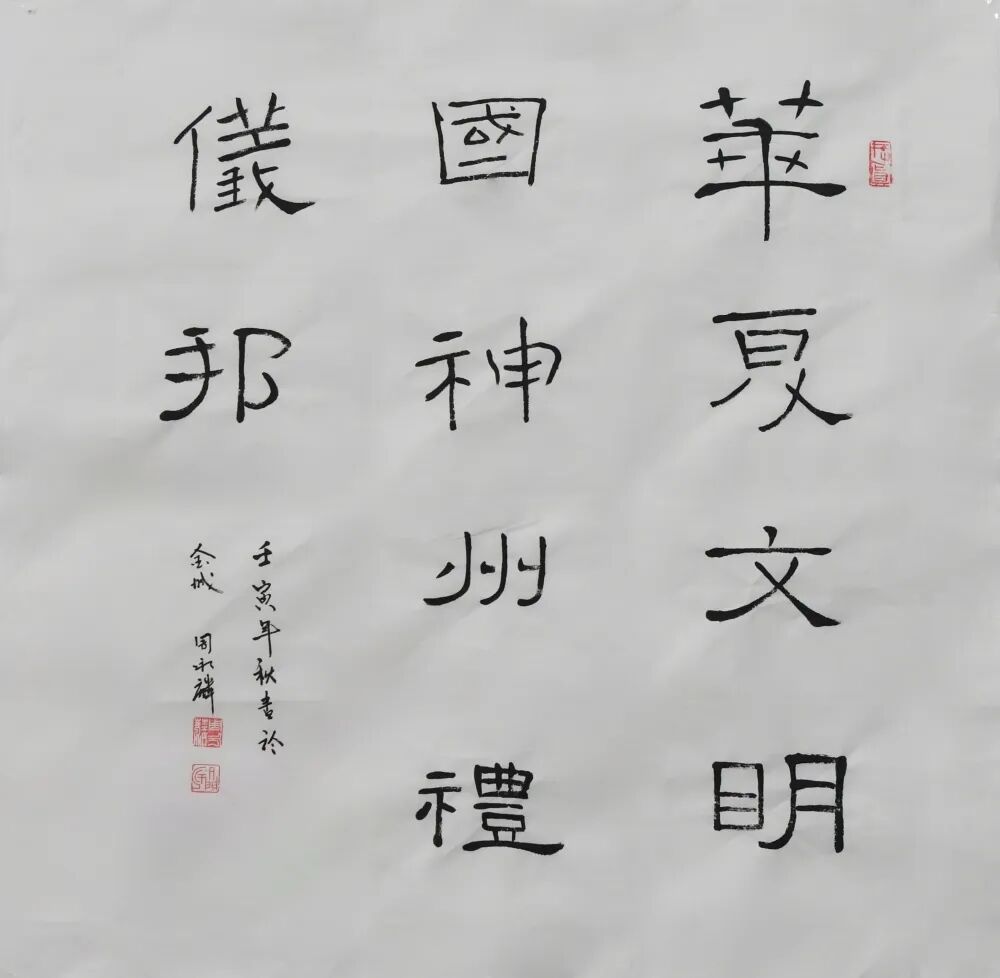 華夏文明
國神州禮
儀邦
壬寅年秋書於
金城 周永麟